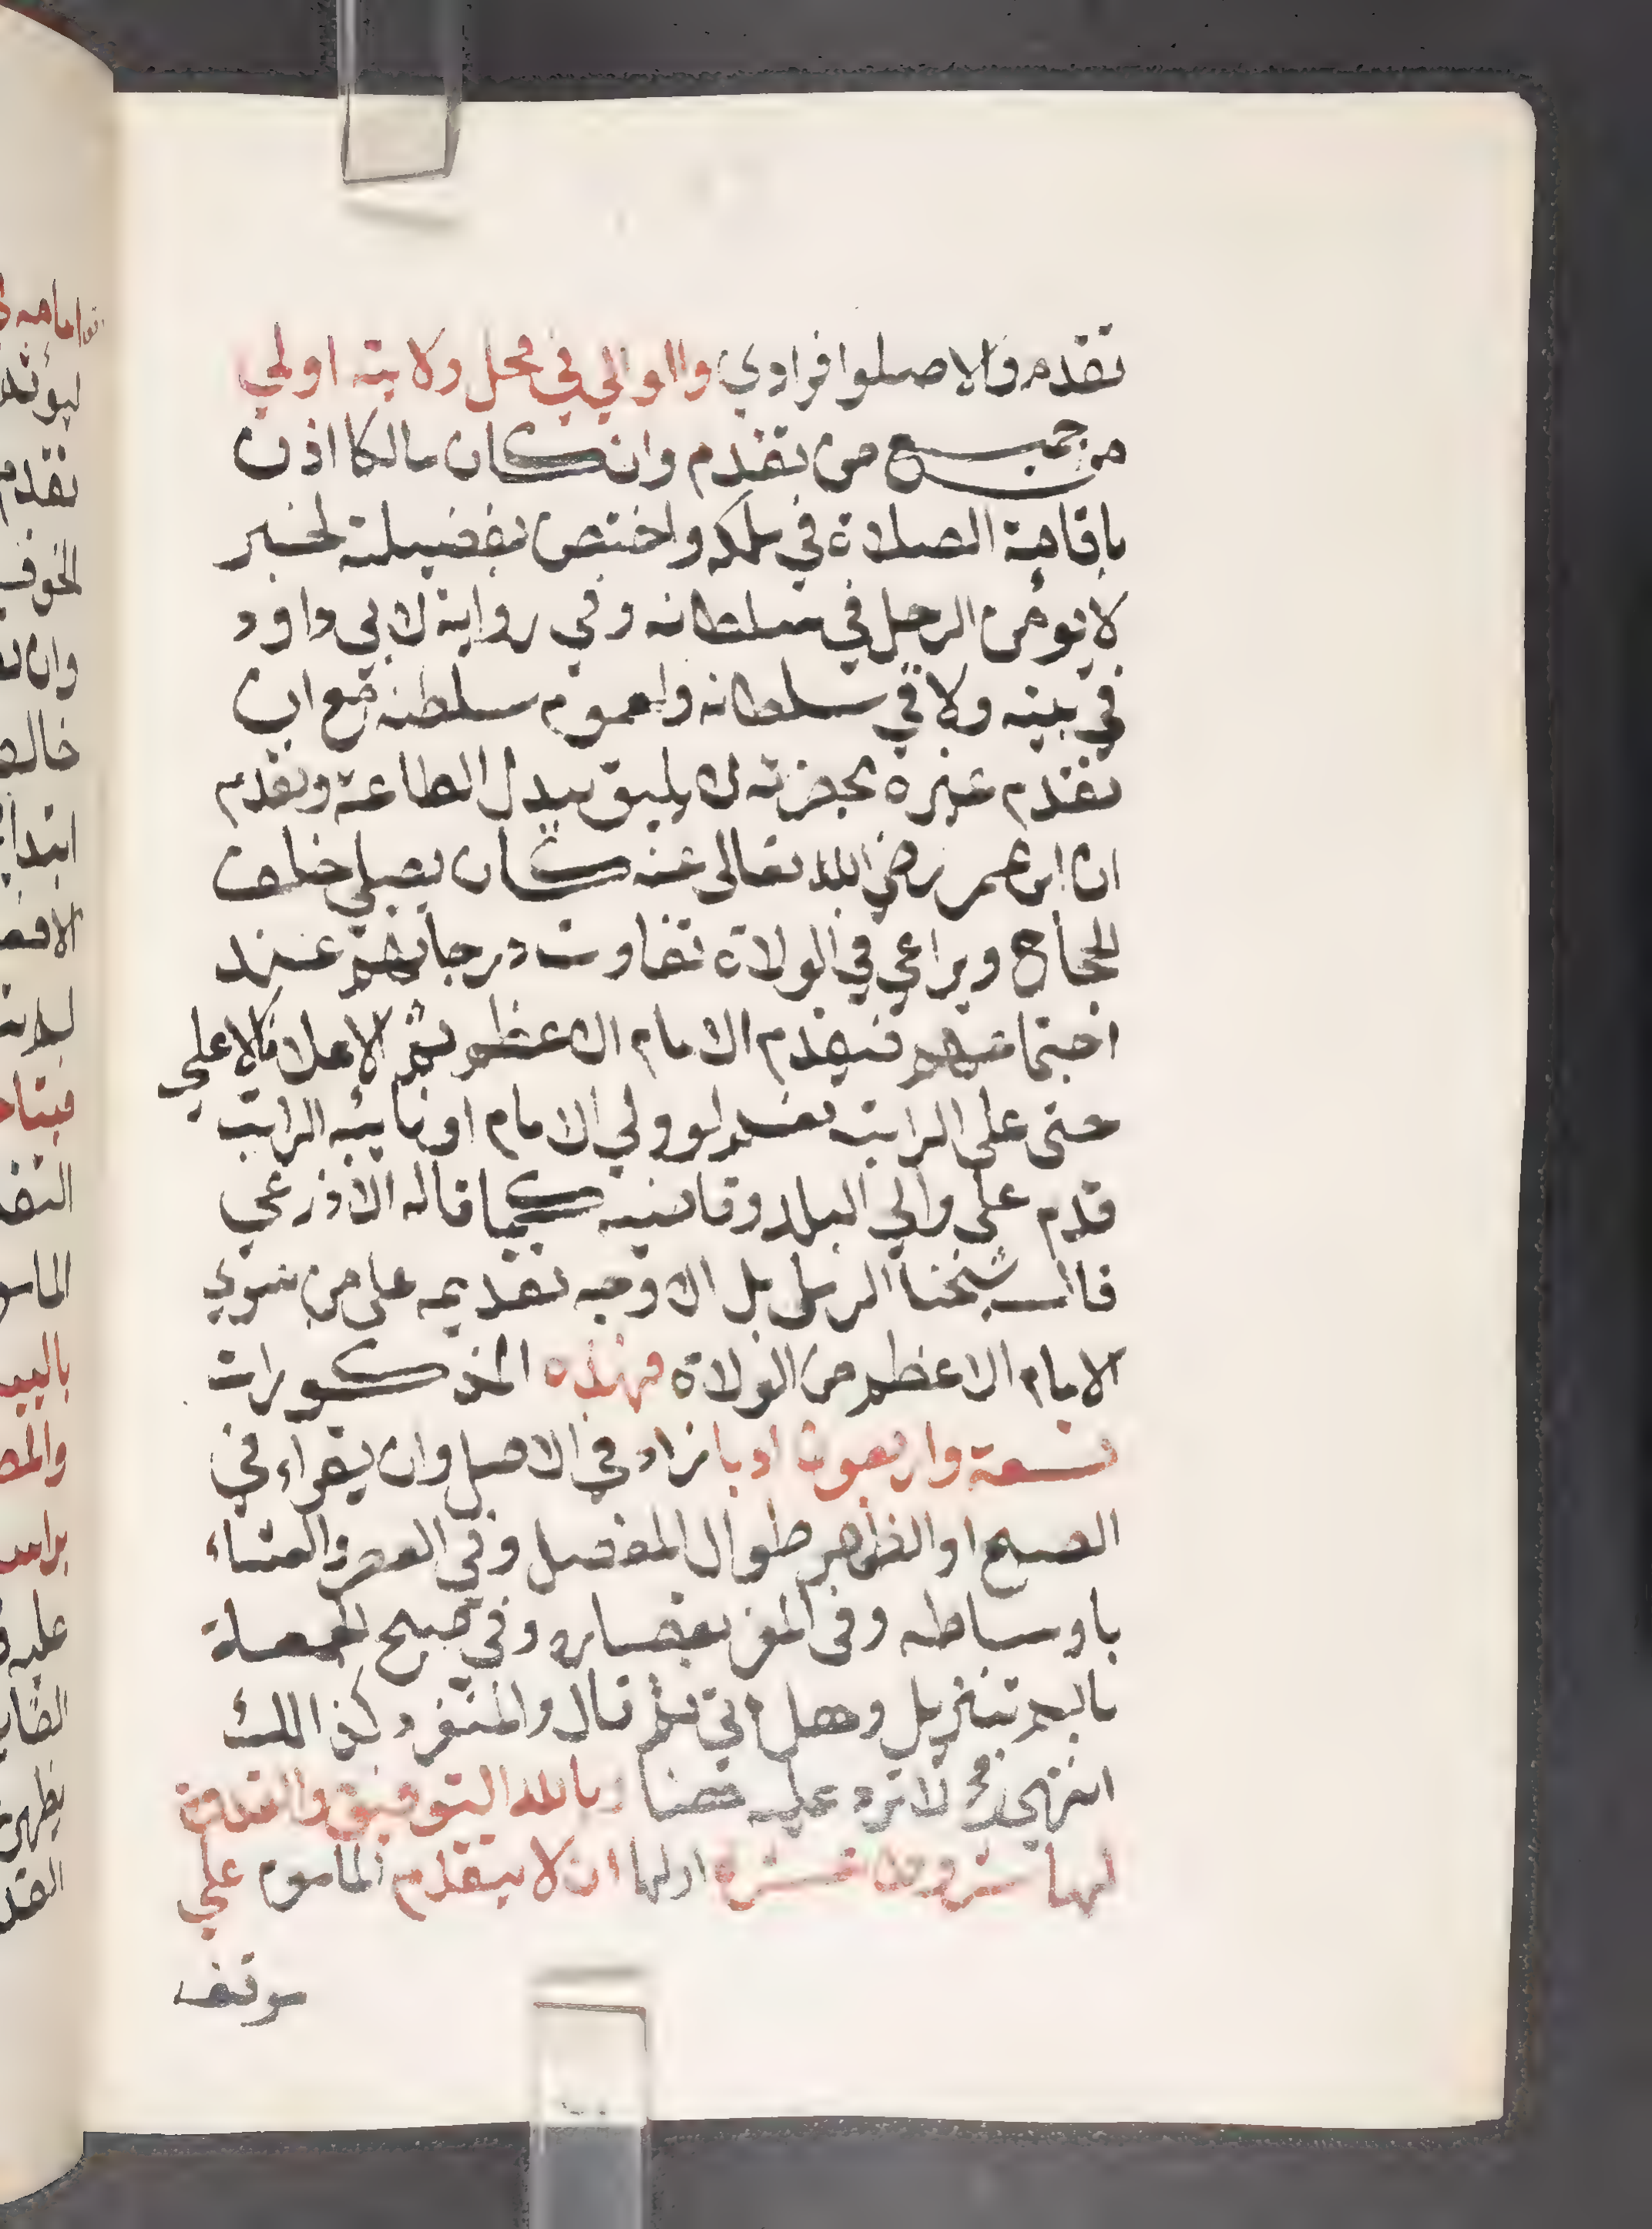 تقدم والا صلوا فرادي والوالي في محل ولايته اولي
من جميع من تقدم وان كان مالكا اذن
باقامة الصلاة في ملكه واختص بفضيلة لخبر
لا يؤمن الرجل في سلطانه وفي رواية لابي داود
في بيته ولا في سلطانه ولعموم سلطنته مع ان
تقدم غيره بحضرته لا يليق ببدل الطاعة وتقدم
ان ابن عمر رضي الله تعالى عنه كان يصلي خلف
الحجاج ويراعي في الولاة تفاوت درجاتهم عند
اجتماعهم فيقدم الامام الاعظم ثم الاعلا فالاعلي
حتى على الراتب نعم لو ولي الامام او نايبه الراتب
قدم علي والي البلد وقاضيه كما قاله الاذرعي
قال شيخنا الرملي بل الاوجه تقديمه على من سوي
الامام الاعظم من الولاة فهذه المذكورات
تسعة واربعون ادبا زاد في الاصل وان يقراء في
الصبح او الظهر طوال المفصل وفي العصر والعشاء
باوساطه وفي المغرب بقصاره وفي صبح الجمعة
بالم تنزيل وهل اتي ثم قال والمنفرد كذالك
انتهي فلا ترد عليه هنا وبالله التوفيق والقدوة
لها شروط عشرة اولها ان لا يتقدم الماموم علي
موقف